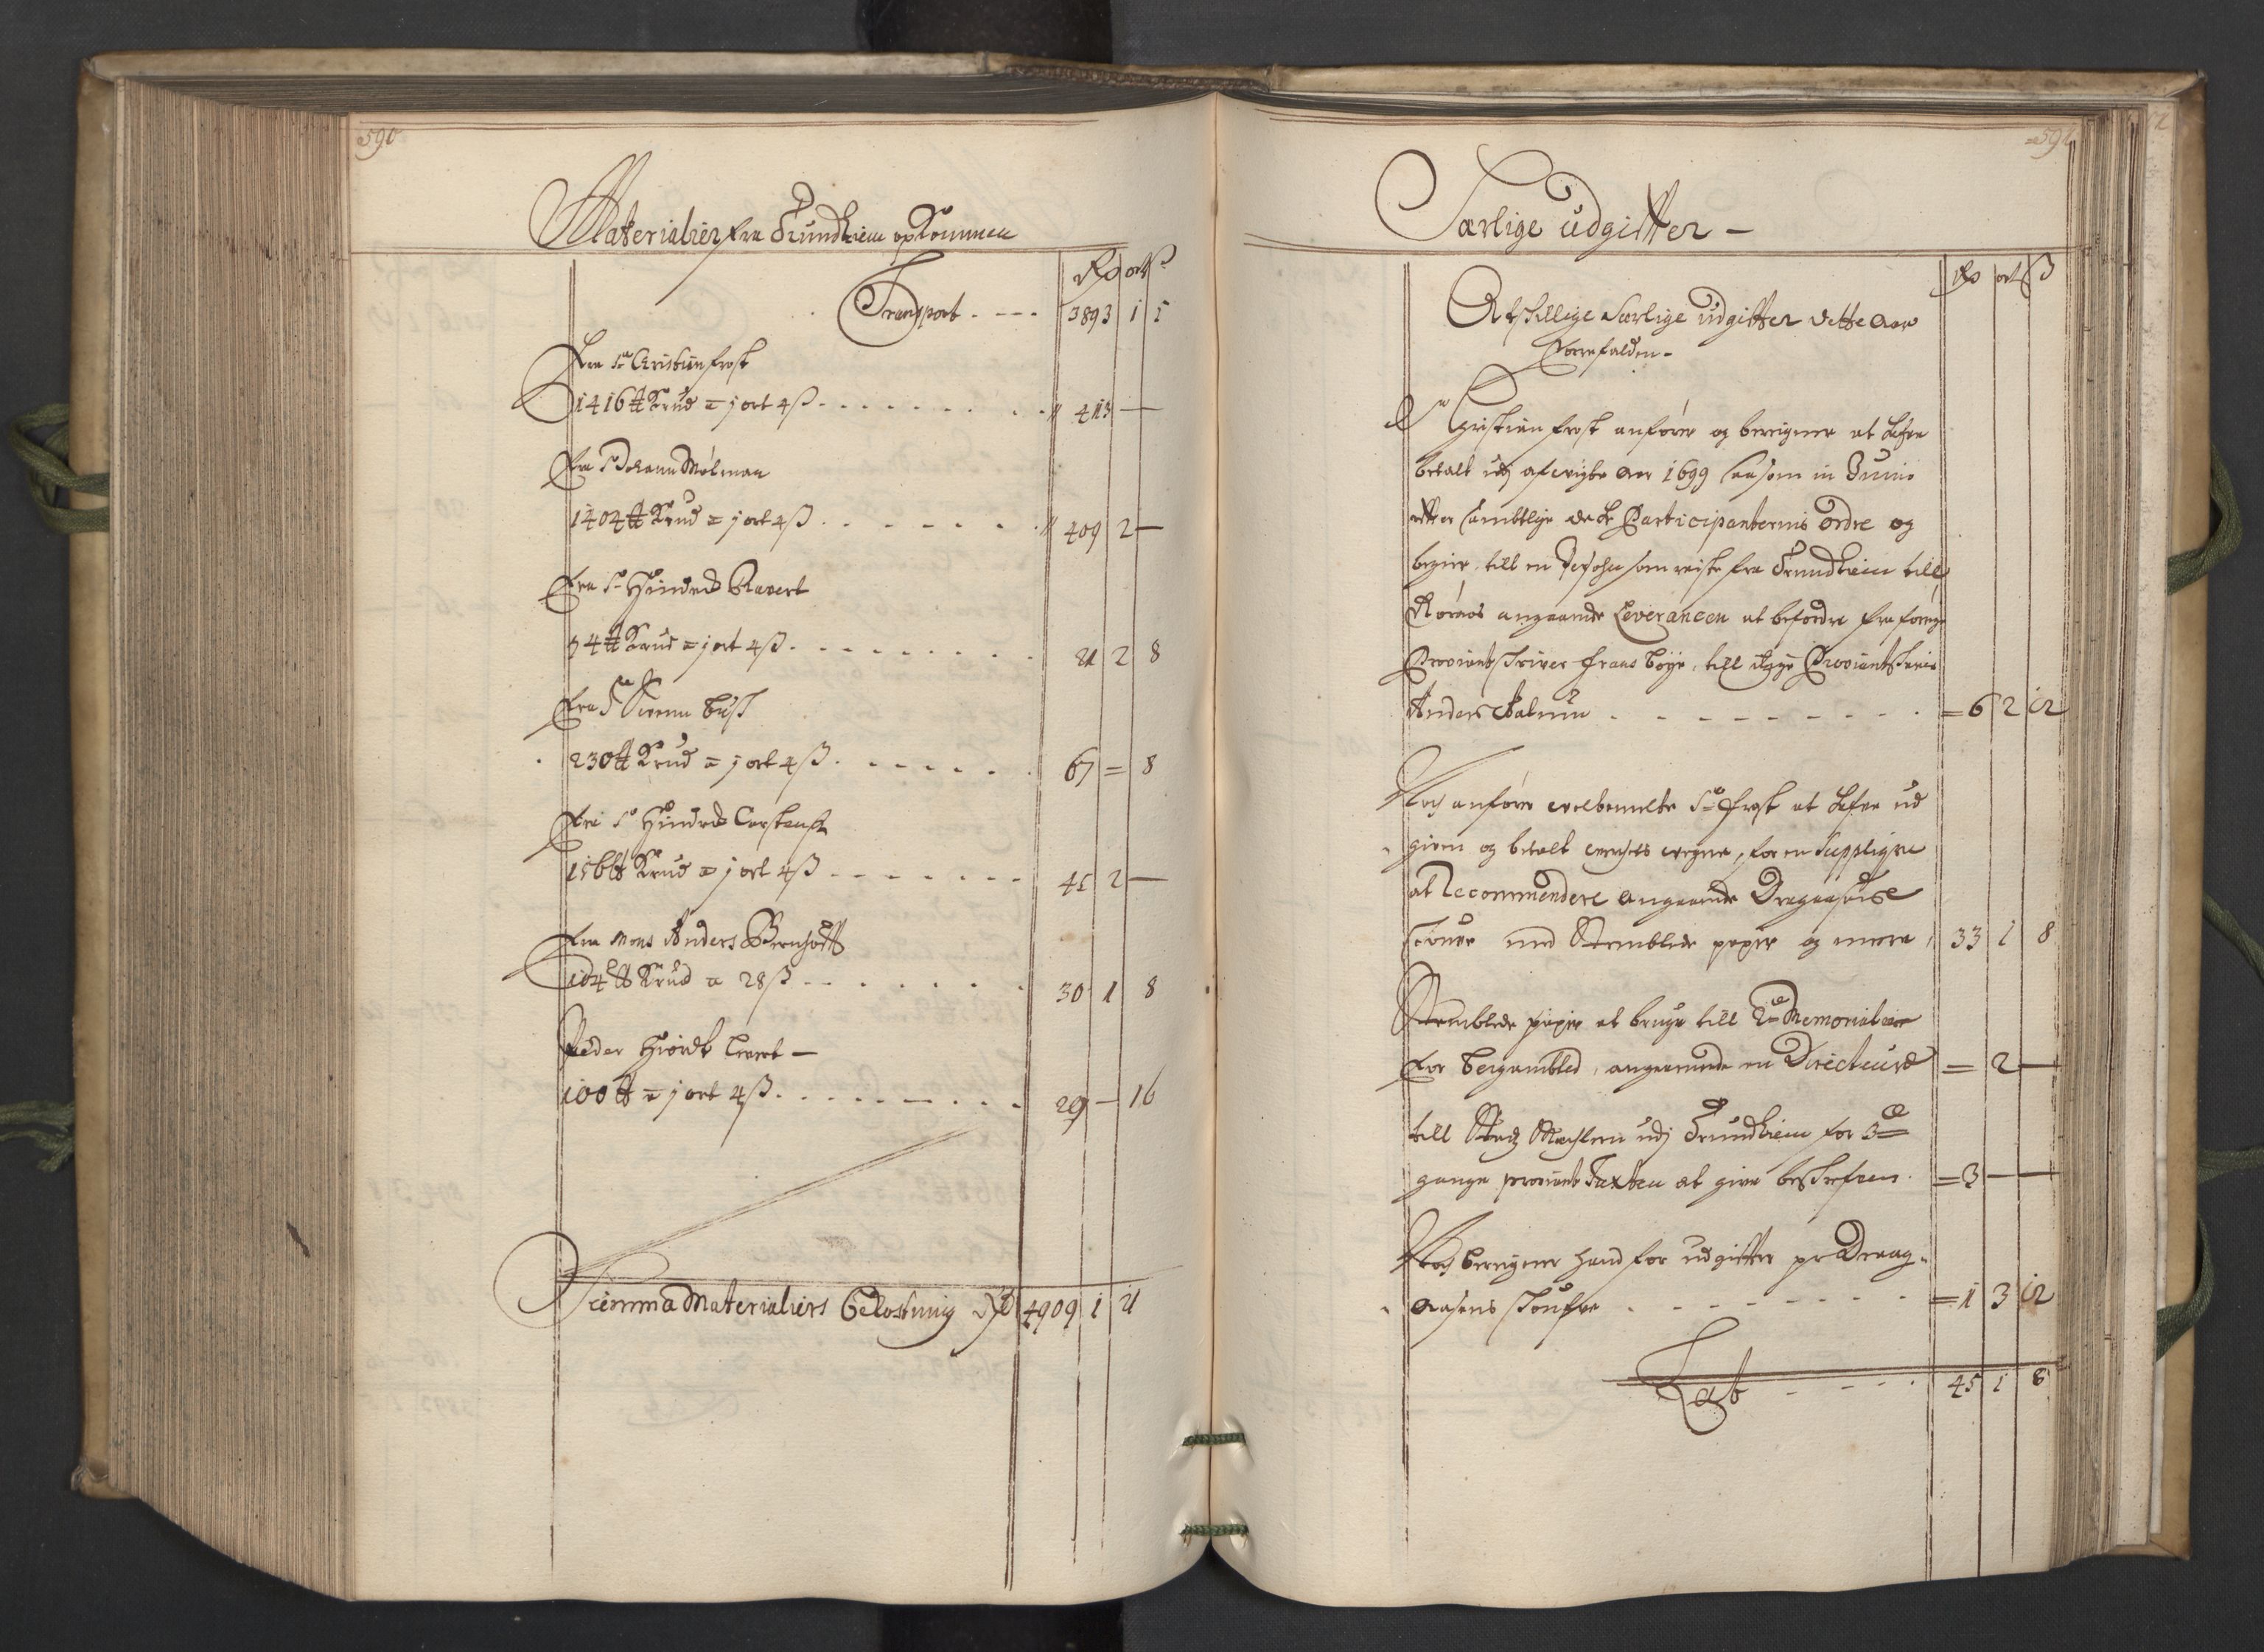 590
Materialier fra Trundhiem opkommen
Rd ort ß
Transport - - - - 3893 1 5
Fra Sr Christian frost
1416 ℔ Krud a j ort 4 ß - - - - 413 —
Fra Sr Johann Mølman
1404 ℔ Krud a j ort 4 ß - - - - 409 2 —
Fra Sr Hindrich Ravert
74 ℔ Krud a j ort 4 ß - - - - 21 2 8
Fra Sr
230 ℔ Krud a j ort 4 ß - - - - 67 = 8
Fra Sr Hindrich Carstensen
156 ℔ Krud a j ort 4 ß - - - - 45 2 —
Fra Mons Anders Bernhoft
104 ℔ Krud a 28 ß - - - - 30 1 8
Peder Hiordt levert —
100 ℔ a j ort 4 ß - - - - 29 — 16
Summa Materialiers Belostning Rd 4909 1 21
591
Særlige udgifter —
Rd ort ß
Atskillige Særlige udgifter dette Aar
forrefalden -
Sr Christian frost anfører og bereigner at hafue
betalt udj afvigte Aar 1699 saasom in Junio
efter sambtlige Participanternis ordre og
begier, till en Persohn som reiste fra Trundhiem till
Røraas angaaende Leverancen at befordre fra forige
Proviantskriver frans Bøye, till Proviantskriver
Anders - - - - = 6 2 12
Noch anfører velbemelte Sr frost at hafue ud
given og betalt verchets vegne, for en Supplique
at Recommendere angaaende Dragaasens
schouve med Stemblede papir og meere, 33 1 8
Stemblede papir at bruge till 2de Memorialer
for bergambted, angaaende en Directeurs = 2 —
till Stadz udj Trundhiem for 3de
gange proviant Taxten at give beskrefven. = 3 — —
Noch bereigner hand for udgifter pr Draag-
aasens skoufue - - - - = 1 3 12
Lat - - - - 45 1 8